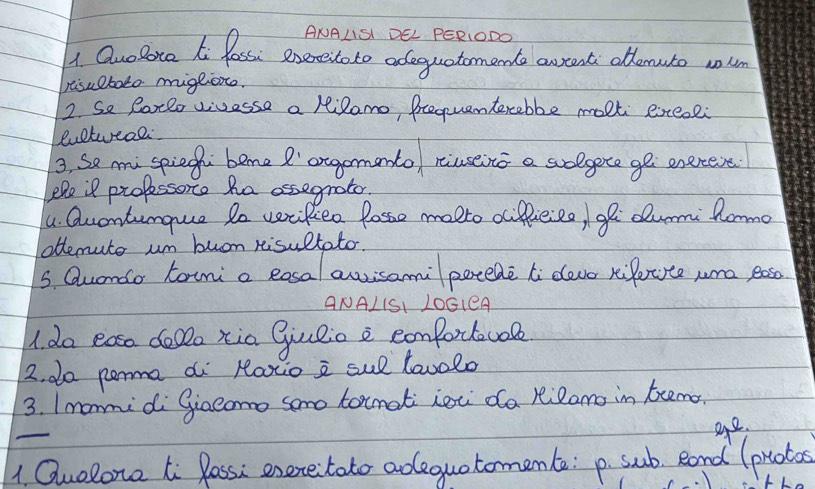 ANALISI DEL PERIODO
1. Qualora ti fossi esercitato adeguatamente avresti ottenuto un
risultato migliore.
2. Se Carlo vivesse a Milano, frequenterebbe molti circoli
culturali.
3. Se mi spieghi bene l'argomento, riuscirò a svolgere gli esercizi
che il professore ha assegnato.
4. Quantunque la verifica fosse molto difficile, gli alunni hanno
ottenuto un buon risultato.
5. Quando torni a casa avvisami perché ti devo riferire una cosa
ANALISI LOGICA
1. La casa della zia Giulia è confortevole.
2. La penna di Mario è sul tavolo
3. I nonni di Giacomo sono tornati ieri da Milano in treno.
1. Qualora ti fossi esercitato adeguatamente: p. sub. cond (protas